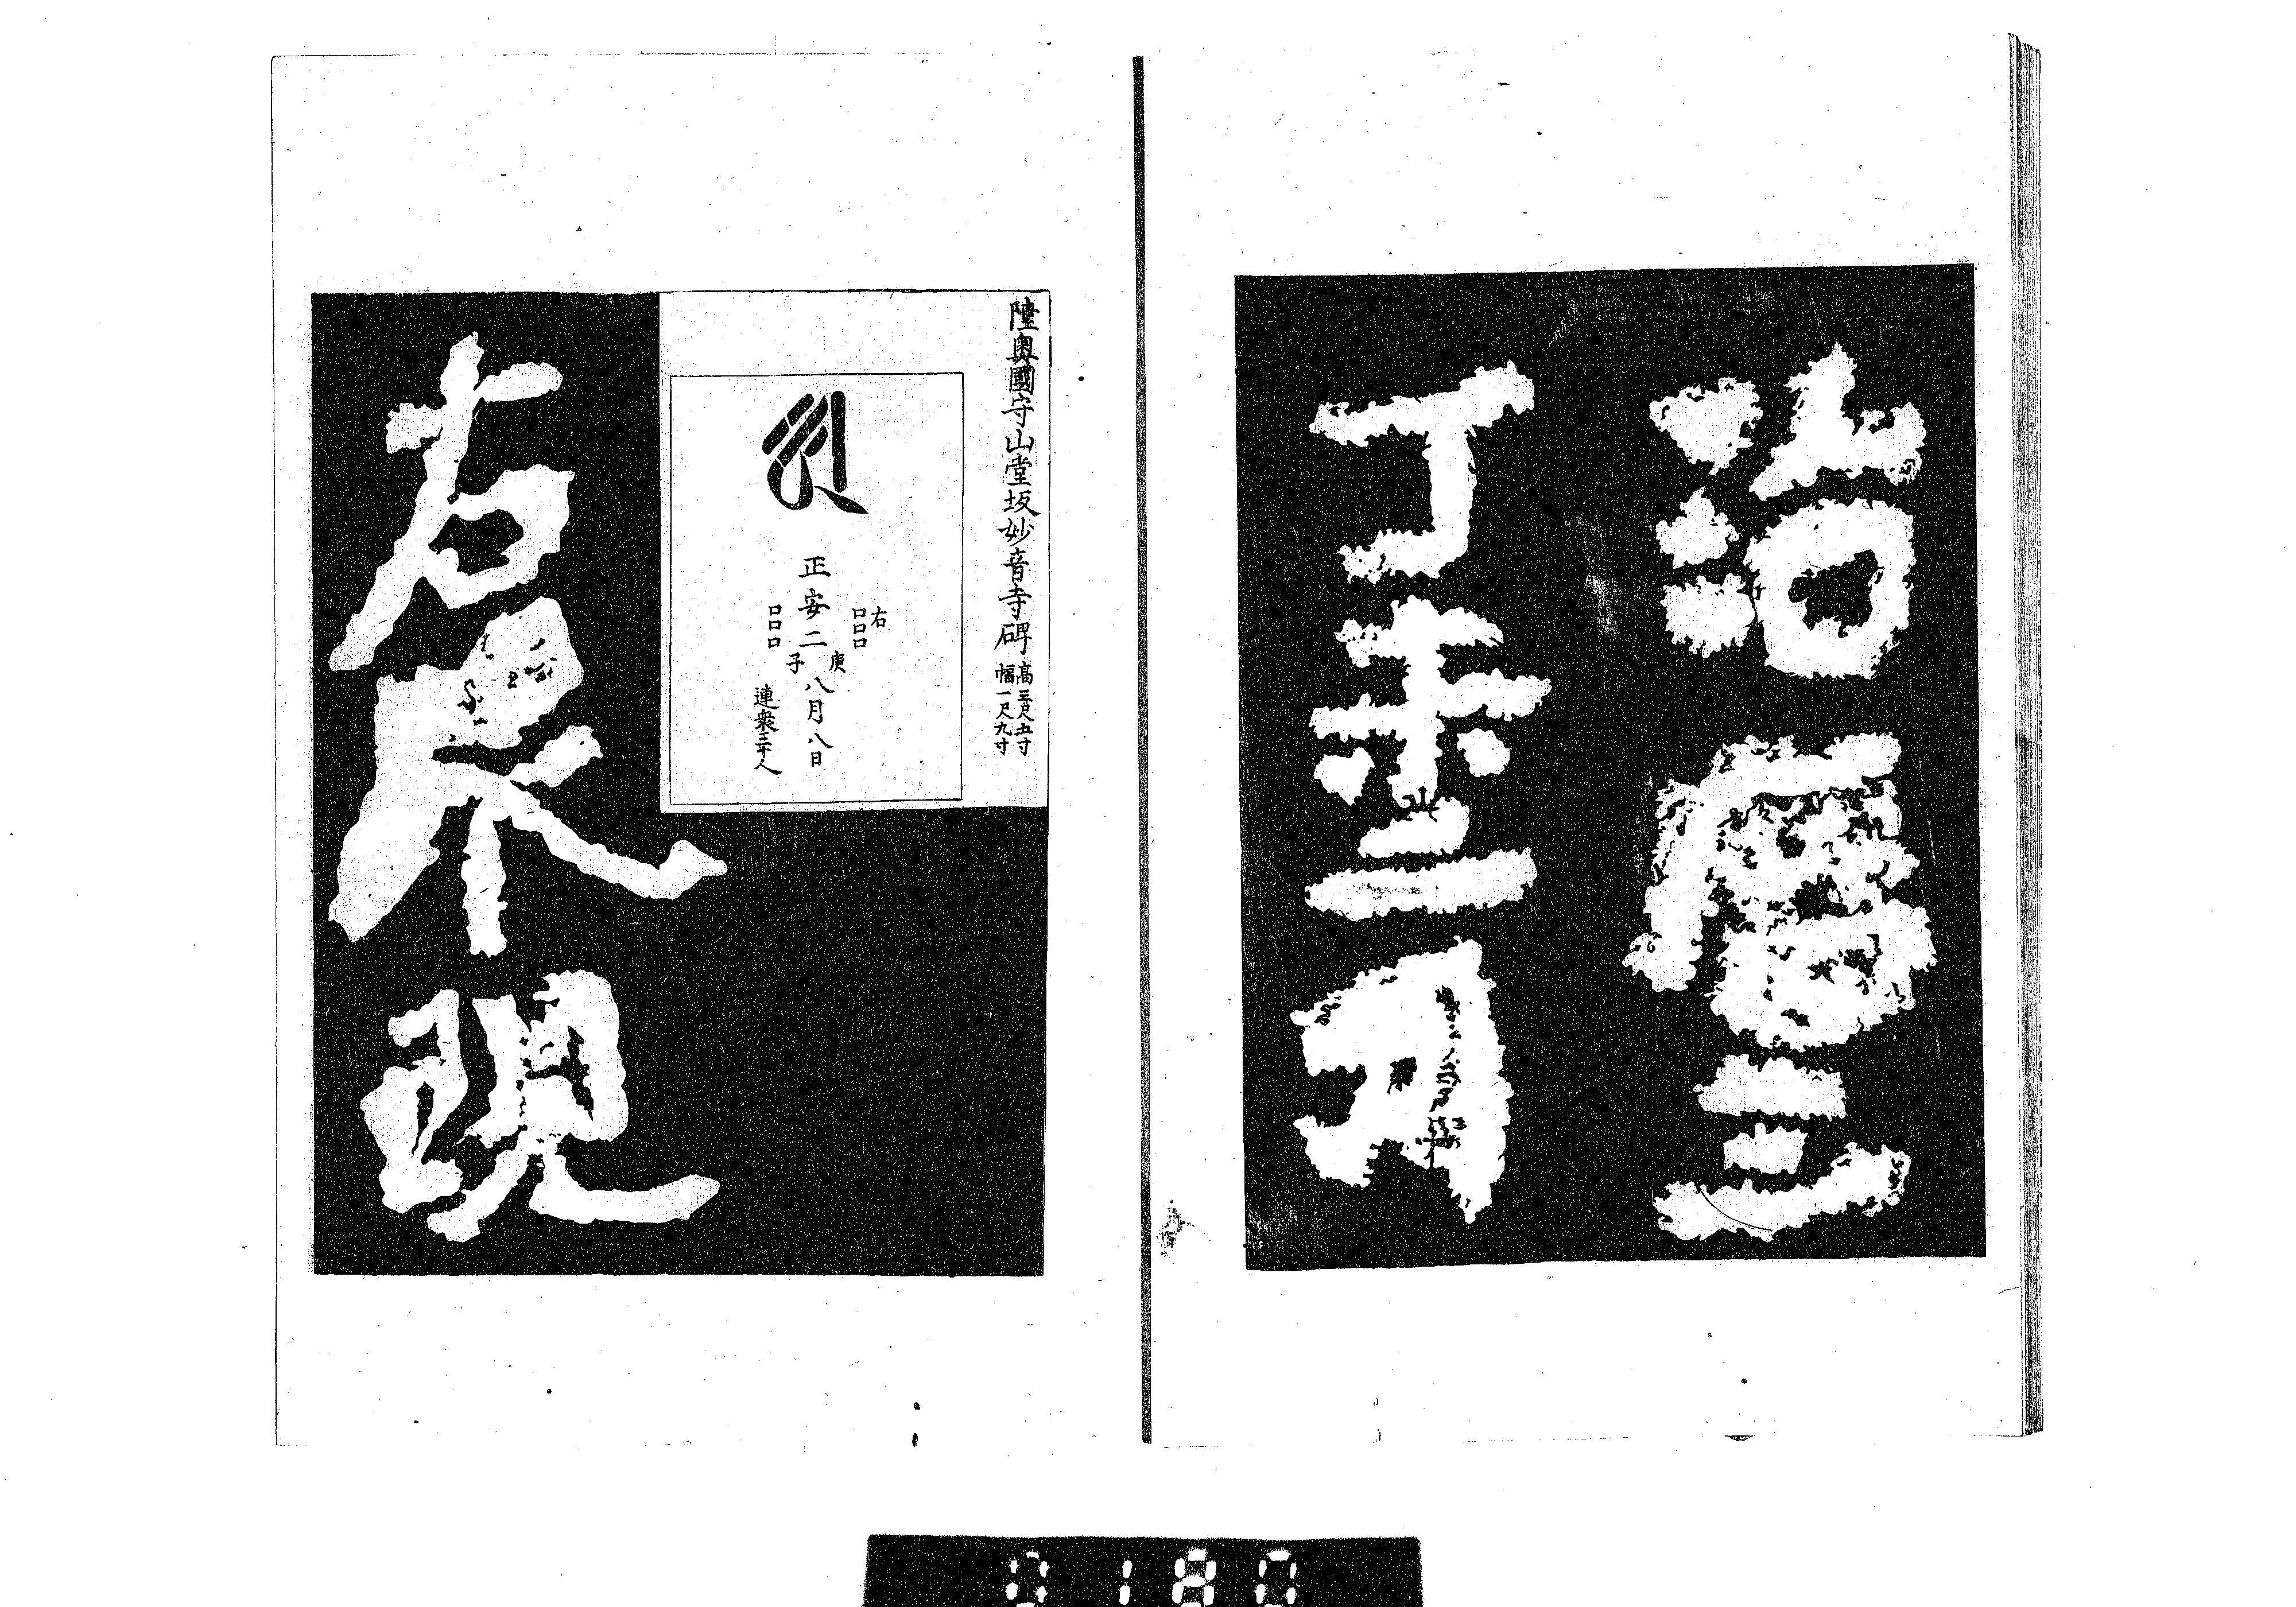 治暦三
丁未二月
陸奥國守山堂坂妙音寺碑 高三尺五寸
幅一尺九寸
右
□□□
正安二庚子八月八日
□□□
連衆三十人
右
現
0180